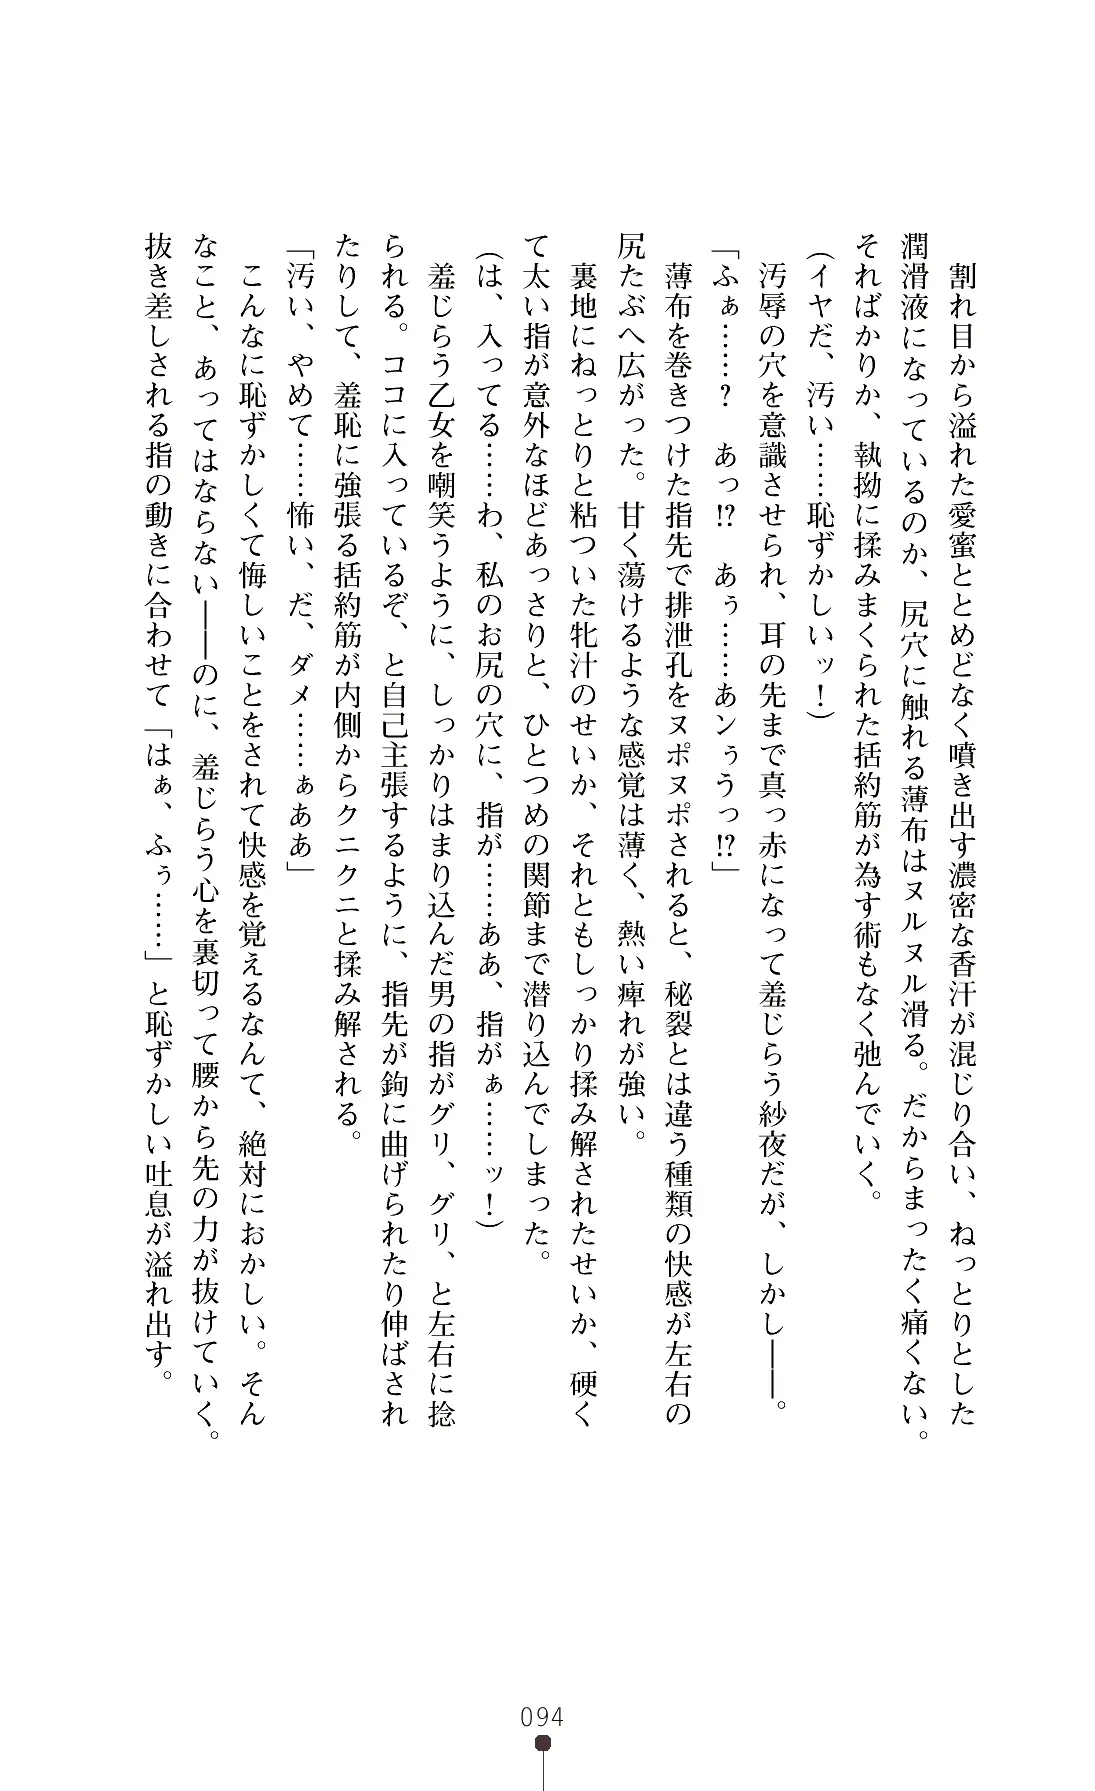 割れ目から溢れた愛蜜ととめどなく噴き出す濃密な香汗が混じり合い、ねっとりとした
潤滑液になっているのか、尻穴に触れる薄布はヌルヌル滑る。だからまったく痛くない。
そればかりか、執拗に揉みまくられた括約筋が為す術もなく弛んでいく。
(イヤだ、汚い……恥ずかしいッ！)
汚辱の穴を意識させられ、耳の先まで真っ赤になって羞じらう紗夜だが、しかし――。
「ふぁ……？　あっ!?　あぅ……あンぅうっ!?」
薄布を巻きつけた指先で排泄孔をヌポヌポされると、秘裂とは違う種類の快感が左右の
尻たぶへ広がった。甘く蕩けるような感覚は薄く、熱い痺れが強い。
裏地にねっとりと粘ついた牝汁のせいか、それともしっかり揉み解されたせいか、硬く
て太い指が意外なほどあっさりと、ひとつめの関節まで潜り込んでしまった。
(は、入ってる……わ、私のお尻の穴に、指が……ああ、指がぁ……ッ！)
羞じらう乙女を嘲笑うように、しっかりはまり込んだ男の指がグリ、グリ、と左右に捻
られる。ココに入っているぞ、と自己主張するように、指先が鉤に曲げられたり伸ばされ
たりして、羞恥に強張る括約筋が内側からクニクニと揉み解される。
「汚い、やめて……怖い、だ、ダメ……ぁああ」
こんなに恥ずかしくて悔しいことをされて快感を覚えるなんて、絶対におかしい。そん
なこと、あってはならない――のに、羞じらう心を裏切って腰から先の力が抜けていく。
抜き差しされる指の動きに合わせて「はぁ、ふぅ……」と恥ずかしい吐息が溢れ出す。
094